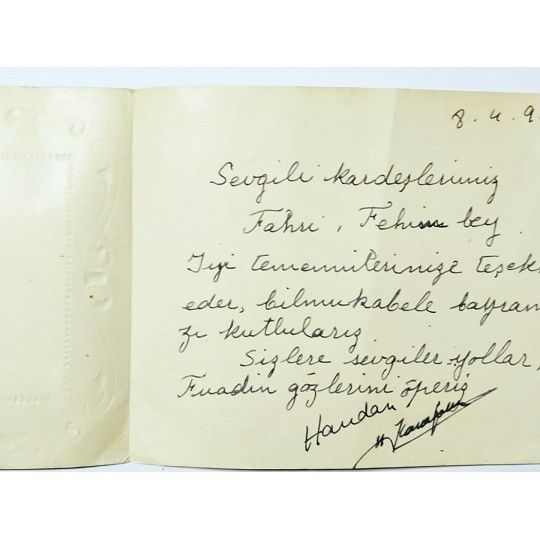 8.4.9
Sevgili kardeşlerimiz
Fahri, Fehim bey
İyi temennilerinize teşek
eder, bilmukabele bayram
zı kutlularız
Sizlere sevgiler yollar,
Fuadın gözlerini öperiz
Handan